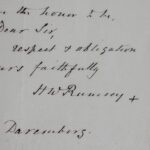 the honor to be,
Dear Sir,
respect & obligation
faithfully
H W Rumsey +
Daremberg.